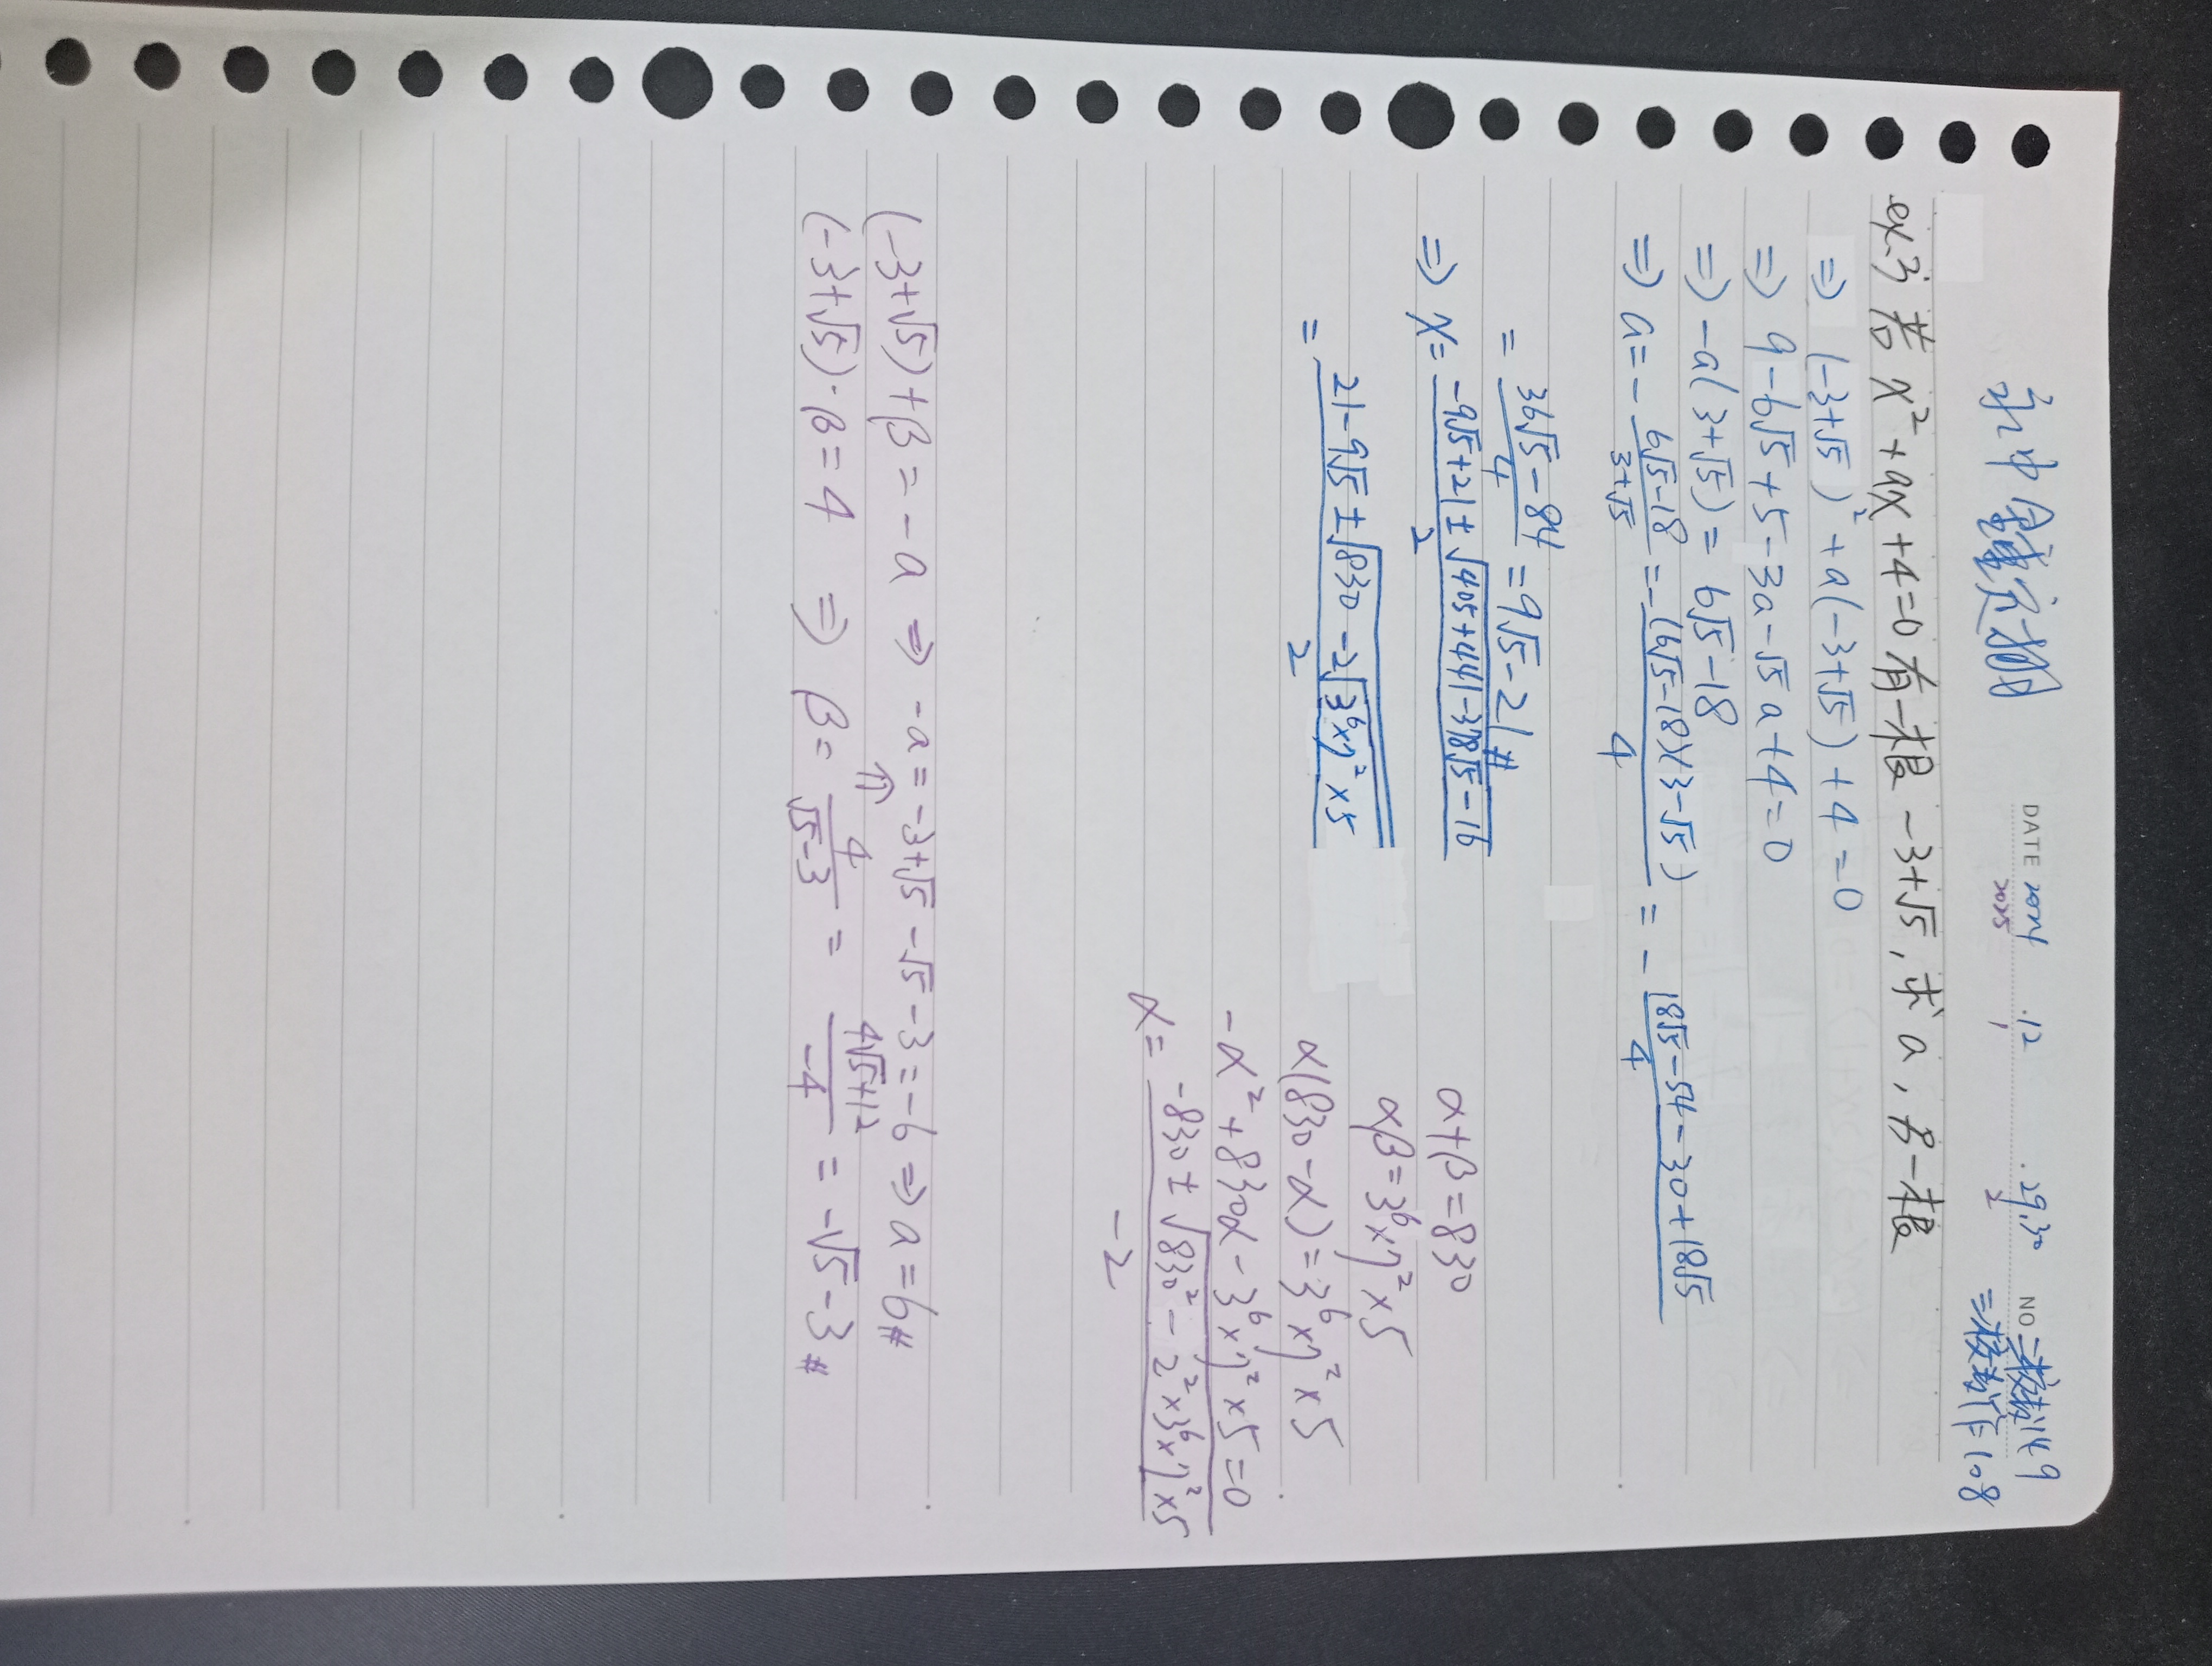 永中鍾定栩 DATE 2024 .12 .29.30 NO 三校教149
2025 1 2 三校教作108
ex.3 若 x²+ax+4=0 有一根 -3+√5, 求 a, 另一根
⇒ (-3+√5)²+a(-3+√5)+4=0
⇒ 9-6√5+5-3a-√5a+4=0
⇒ -a(3+√5)= 6√5-18
⇒ a=-(6√5-18)/(3+√5)=-(6√5-18)(3-√5)/4 = -(18√5-54-30+18√5)/4
= (36√5-84)/4 =9√5-21#
⇒ x=(-9√5+21±√(405+441-378√5-16))/2
= (21-9√5±√(830-2√(3⁶×7²×5)))/2
α+β=830
αβ=3⁶×7²×5
α(830-α)=3⁶×7²×5
-α²+830α-3⁶×7²×5=0
α=(-830±√(830²-2²×3⁶×7²×5))/-2
(-3+√5)+β=-a ⇒ -a=-3+√5-√5-3=-6⇒a=6#
⇑
(-3+√5)·β=4 ⇒ β=4/(√5-3) = (4√5+12)/-4 = -√5-3#